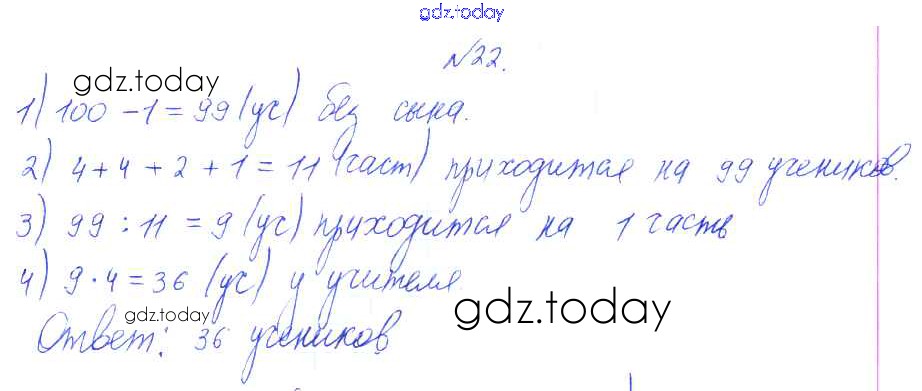 gdz.today
№22.
gdz.today
1) 100 - 1 = 99 (уч) без сына.
2) 4 + 4 + 2 + 1 = 11 (част) приходится на 99 учеников.
3) 99 : 11 = 9 (уч) приходится на 1 часть
4) 9 · 4 = 36 (уч) у учителя
gdz.today
gdz.today
Ответ: 36 учеников